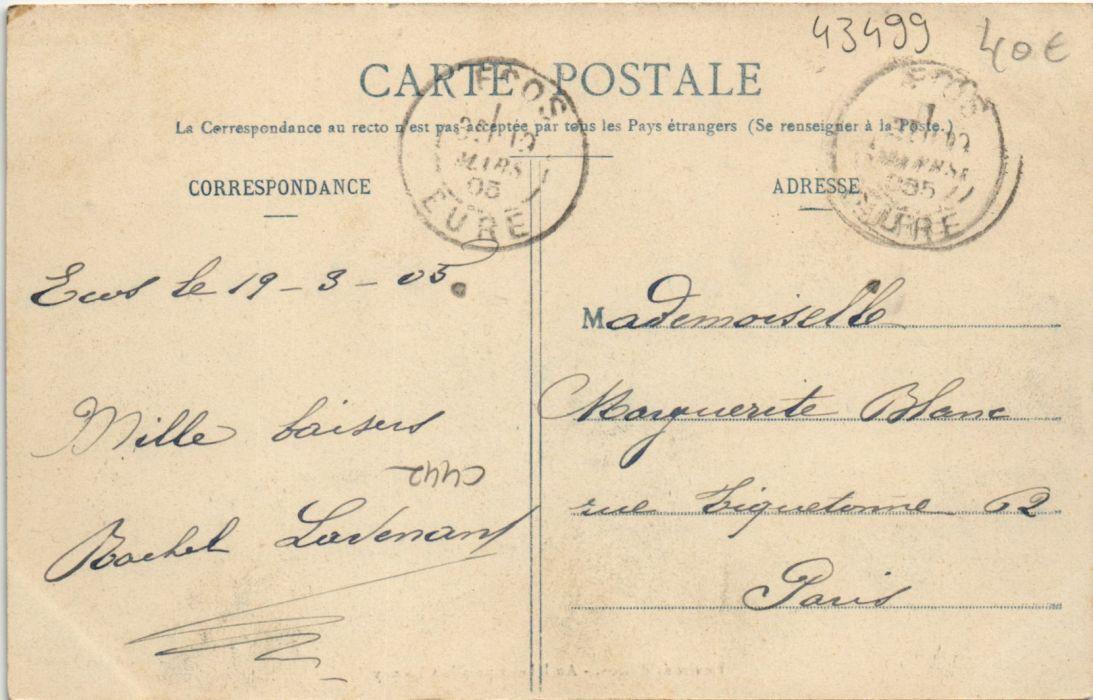 43499
40€
CARTE POSTALE
La Correspondance au recto n'est pas acceptée par tous les Pays étrangers (Se renseigner à la Poste.)
CORRESPONDANCE
ECOS
MARS
05
EURE
Ecos le 19-3-05.
Mille baisers
C442
Rachel Lavenant
ADRESSE
ECOS
05
EURE
Mademoiselle
Marguerite Blanc
rue Tiquetonne 62
Paris